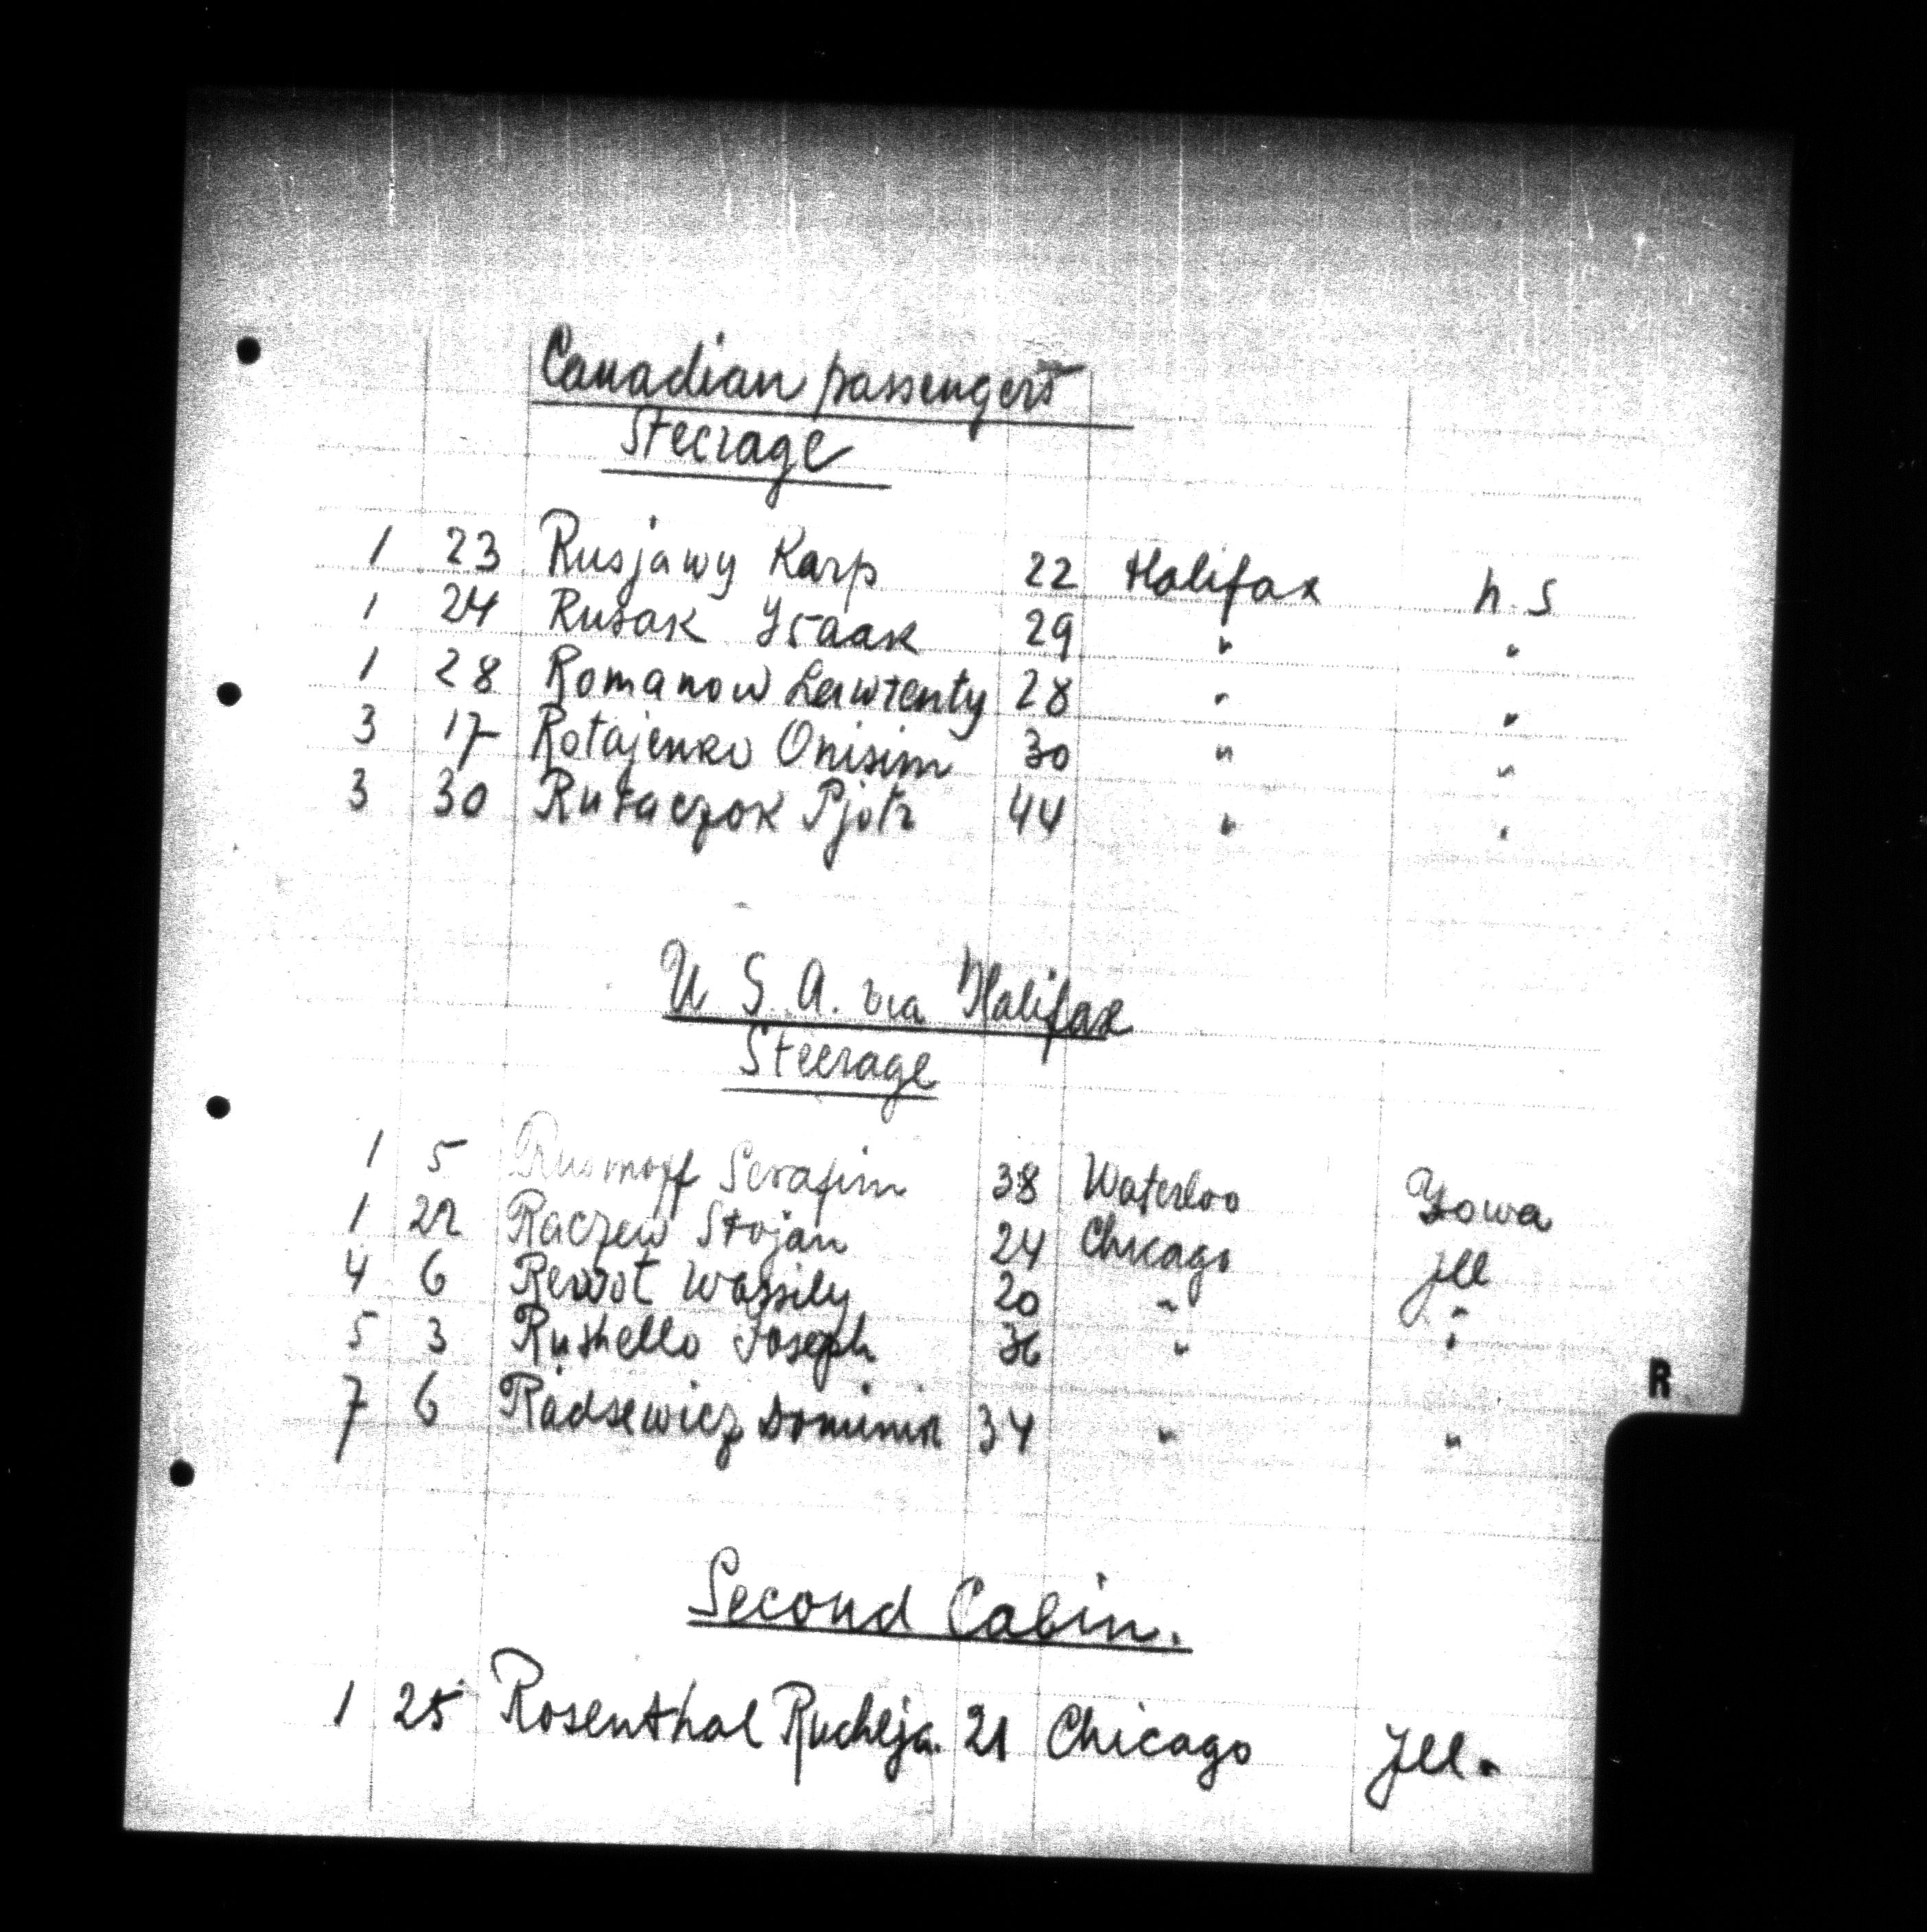 Canadian passengers
Steerage
1 23 Rusjawy Karp 22 Halifax N. S
1 24 Rusak Ysaak 29 " "
1 28 Romanow Lawrenty 28 " "
3 17 Rotajenko Onisim 30 " "
3 30 Rutaczok Pjotr 44 " "
U S. A. via Halifax
Steerage
1 5 Serafim 38 Waterloo Yowa
1 22 Raczew Stojan 24 Chicago Jll
4 6 Wassily 20 " "
5 3 Rushello Joseph 36 " "
R
7 6 Radsewicz Dominik 34 " "
Second Cabin.
1 25 Rosenthal Ruchlja. 21 Chicago Jll.